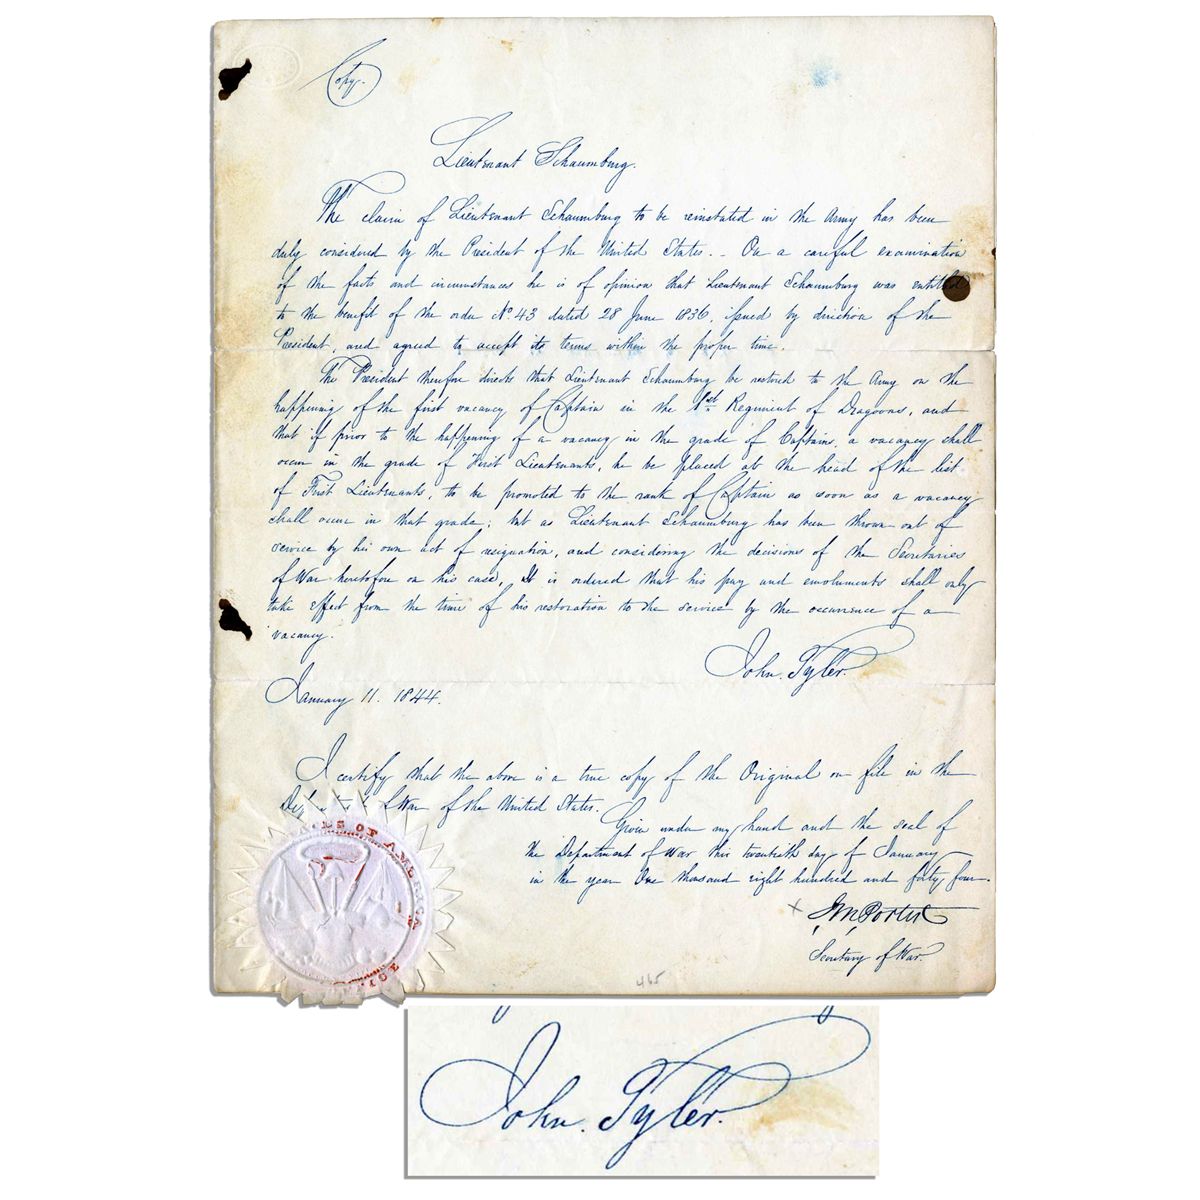 Copy.
Lieutenant Schaumburg.
The claim of Lieutenant Schaumburg to be reinstated in the Army has been
duly considered by the President of the United States. - On a careful examination
of the facts and circumstances he is of opinion that Lieutenant Schaumburg was entitled
to the benefit of the order No. 43 dated 28 June 1836, issued by direction of the
President, and agreed to accept its terms within the proper time.
The President therefore directs that Lieutenant Schaumburg be restored to the Army on the
happening of the first vacancy of Captain in the 1st Regiment of Dragoons, and
that if prior to the happening of a vacancy in the grade of Captains, a vacancy shall
occur in the grade of First Lieutenants, he be placed at the head of the list
of First Lieutenants, to be promoted to the rank of Captain as soon as a vacancy
shall occur in that grade; but as Lieutenant Schaumburg has been thrown out of
service by his own act of resignation, and considering the decisions of the Secretaries
of War heretofore on his case, It is ordered that his pay and emoluments shall only
take effect from the time of his restoration to the service by the occurrence of a
vacancy.
John. Tyler.
January 11. 1844.
I certify that the above is a true copy of the Original on file in the
of War of the United States.
Given under my hand and the seal of
the Department of War this twentieth day of January
in the year One thousand eight hundred and forty four.
x JM Porter
Secretary of War.
OF AMERICA
OFFICE
465
John. Tyler.